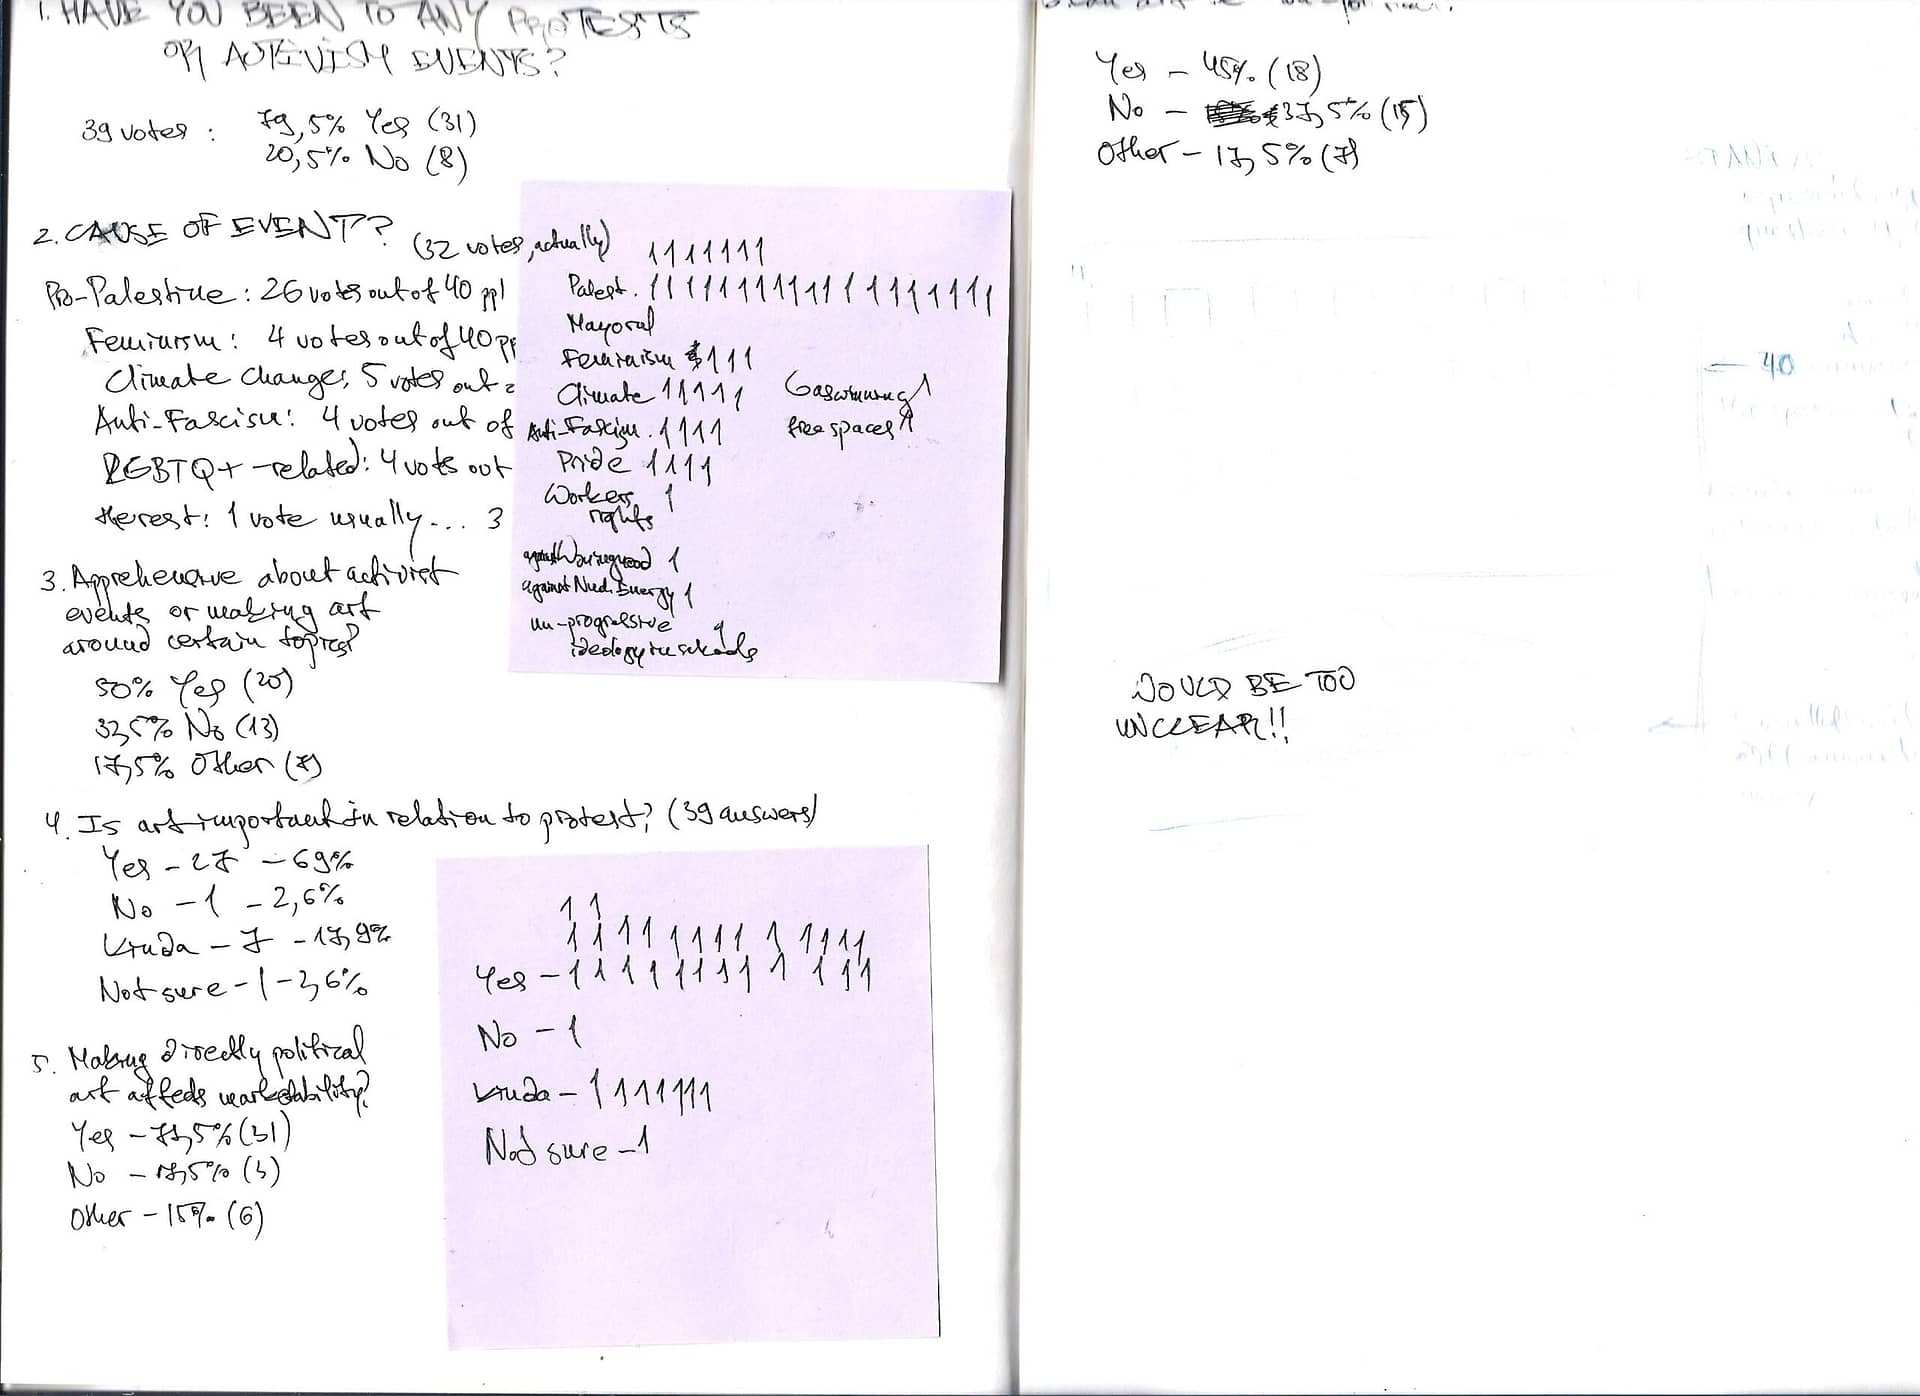 1. HAVE YOU BEEN TO ANY PROTESTS
OR ACTIVISM EVENTS?
39 votes : 79,5% Yes (31)
20,5% No (8)
2. CAUSE OF EVENT? (32 votes, actually)
Pro-Palestine : 26 votes out of 40 ppl
Feminism : 4 votes out of 40 pp
Climate change: 5 votes out
Anti-Fascism: 4 votes out of
LGBTQ+ -related: 4 vots out
the rest: 1 vote usually... 3
3. Apprehensive about activist
events or making art
around certain topics?
50% Yes (20)
32,5% No (13)
17,5% Other (7)
4. Is art important in relation to protest? (39 answers)
Yes - 27 - 69%
No - 1 - 2,6%
Kinda - 7 - 17,9%
Not sure - 1 - 2,6%
5. Making directly political
art affects marketability?
Yes - 77,5% (31)
No - 17,5% (3)
Other - 15% (6)
1111111
Palest. 1111111111111111111
Mayoral
Feminism 111
Climate 11111
Anti-Fascism. 1111
Pride 1111
Workers 1
rights
against 1
against Nucl. Energy 1
un-progressive
ideology in schools 1
Gaswinning 1
free spaces 1
11
1111 1111 1 1111
Yes - 1111 1111 1 111
No - 1
Kinda - 1111111
Not sure - 1
Yes - 45% (18)
No - 37,5% (15)
Other - 17,5% (7)
40
WOULD BE TOO
UNCLEAR!!